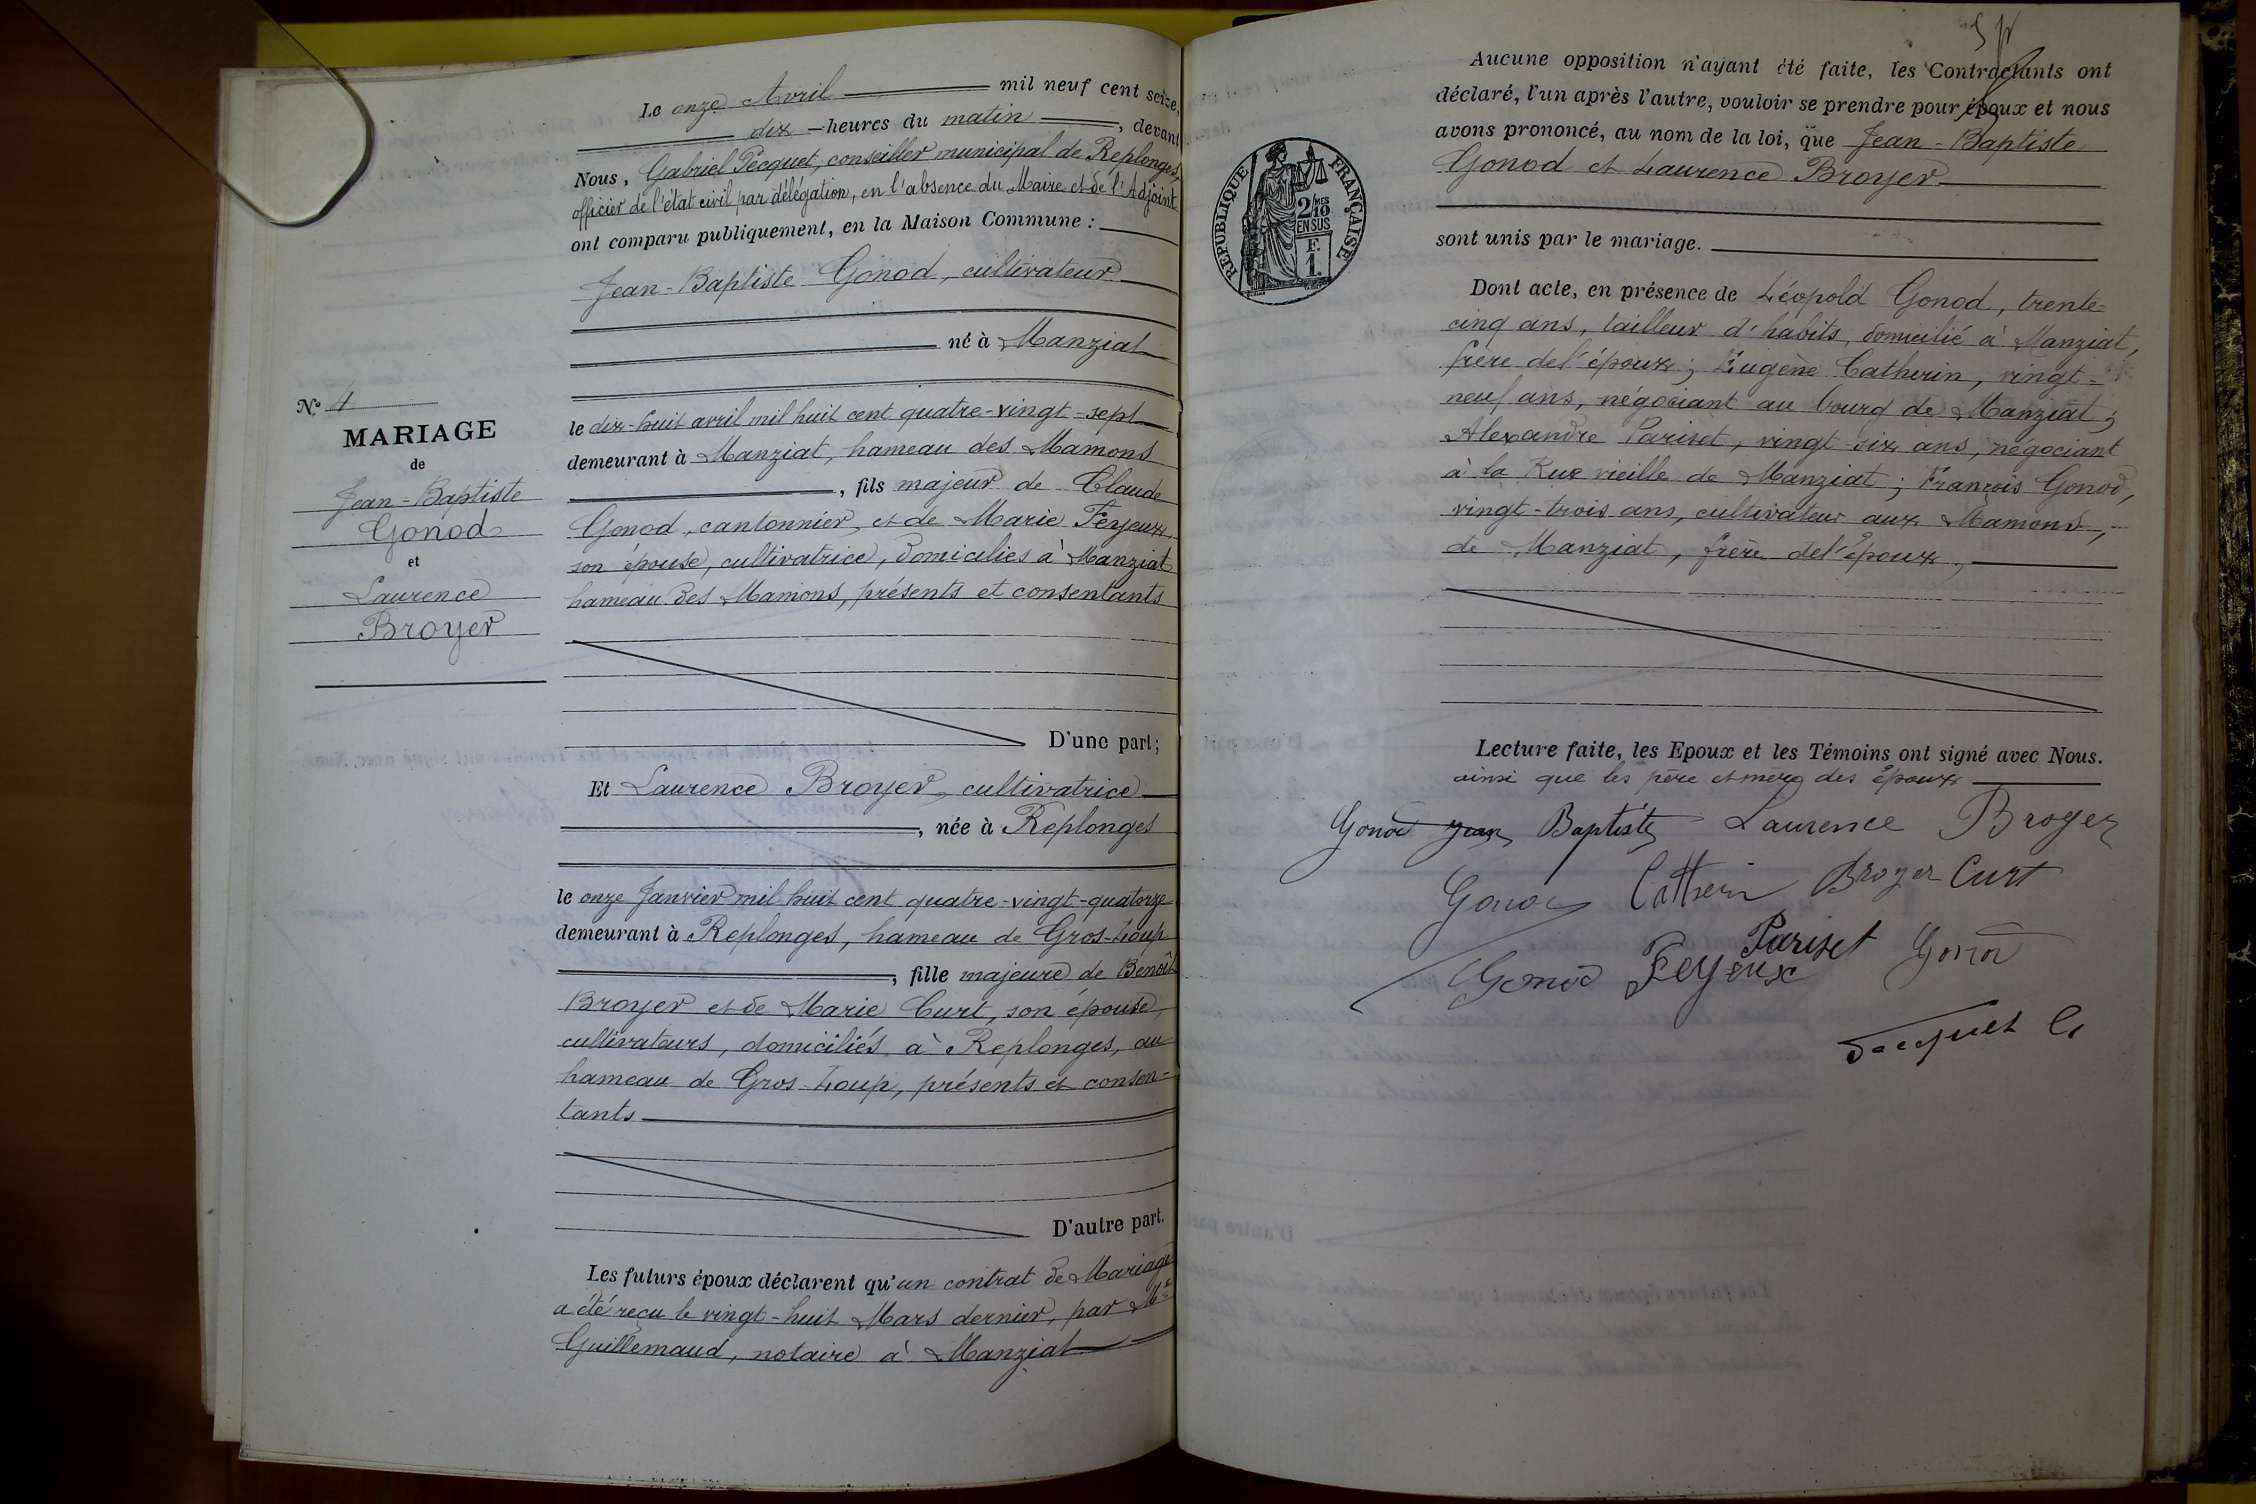 Le onze Avril mil neuf cent seize,
dix heures du matin, devant
Nous, Gabriel Pecquet, conseiller municipal de Replonges,
officier de l'état civil par délégation, en l'absence du Maire et de l'Adjoint
ont comparu publiquement, en la Maison Commune :
Jean-Baptiste Gonod, cultivateur
né à Manziat
le dix-huit avril mil huit cent quatre-vingt-sept
demeurant à Manziat, hameau des Mamons
, fils majeur de Claude
Gonod, cantonnier, et de Marie Feyeux,
son épouse, cultivatrice, domiciliés à Manziat
hameau des Mamons, présents et consentants
D'une part ;
Et Laurence Broyer, cultivatrice
, née à Replonges
le onze Janvier mil huit cent quatre-vingt-quatorze
demeurant à Replonges, hameau de Gros-Loup
, fille majeure de Benoît
Broyer et de Marie Curt, son épouse,
cultivateurs, domiciliés à Replonges, au
hameau de Gros-Loup, présents et consen-
tants
D'autre part.
Les futurs époux déclarent qu'un contrat de Mariage
a été reçu le vingt-huit Mars dernier, par Me
Guillemaud, notaire à Manziat
N° 4
MARIAGE
de
Jean-Baptiste
Gonod
et
Laurence
Broyer
Aucune opposition n'ayant été faite, les Contractants ont
déclaré, l'un après l'autre, vouloir se prendre pour époux et nous
avons prononcé, au nom de la loi, que Jean-Baptiste
Gonod et Laurence Broyer
sont unis par le mariage.
RÉPUBLIQUE FRANÇAISE
2/MES
10
EN SUS
F.
1.
Dont acte, en présence de Léopold Gonod, trente-
cinq ans, tailleur d'habits, domicilié à Manziat,
frère de l'époux ; Eugène Catherin, vingt-
neuf ans, négociant au bourg de Manziat ;
Alexandre Pariset, vingt-six ans, négociant
à la Rue vieille de Manziat ; François Gonod,
vingt-trois ans, cultivateur aux Mamons,
de Manziat, frère de l'époux,
Lecture faite, les Epoux et les Témoins ont signé avec Nous.
ainsi que les père et mère des époux
Gonod Jean Baptiste Laurence Broyer
Gonod Catherin Broyer Curt
Pariset
Gonod Feyeux Gonod
Pecquet G